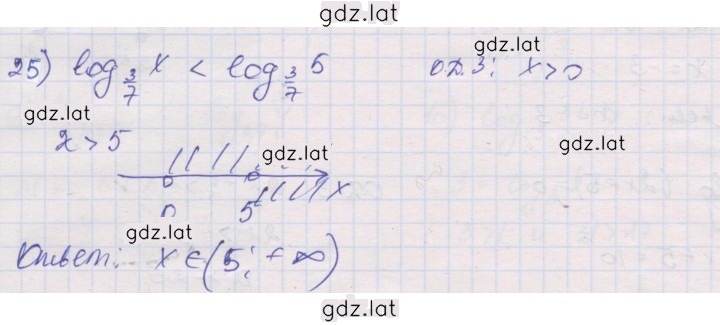 gdz.lat
25) log_{3/7} x < log_{3/7} 5 О.Д.З: x>0
gdz.lat
gdz.lat
x > 5
gdz.lat
gdz.lat
x
0 5
gdz.lat
Ответ: x ∈ (5; +∞)
gdz.lat